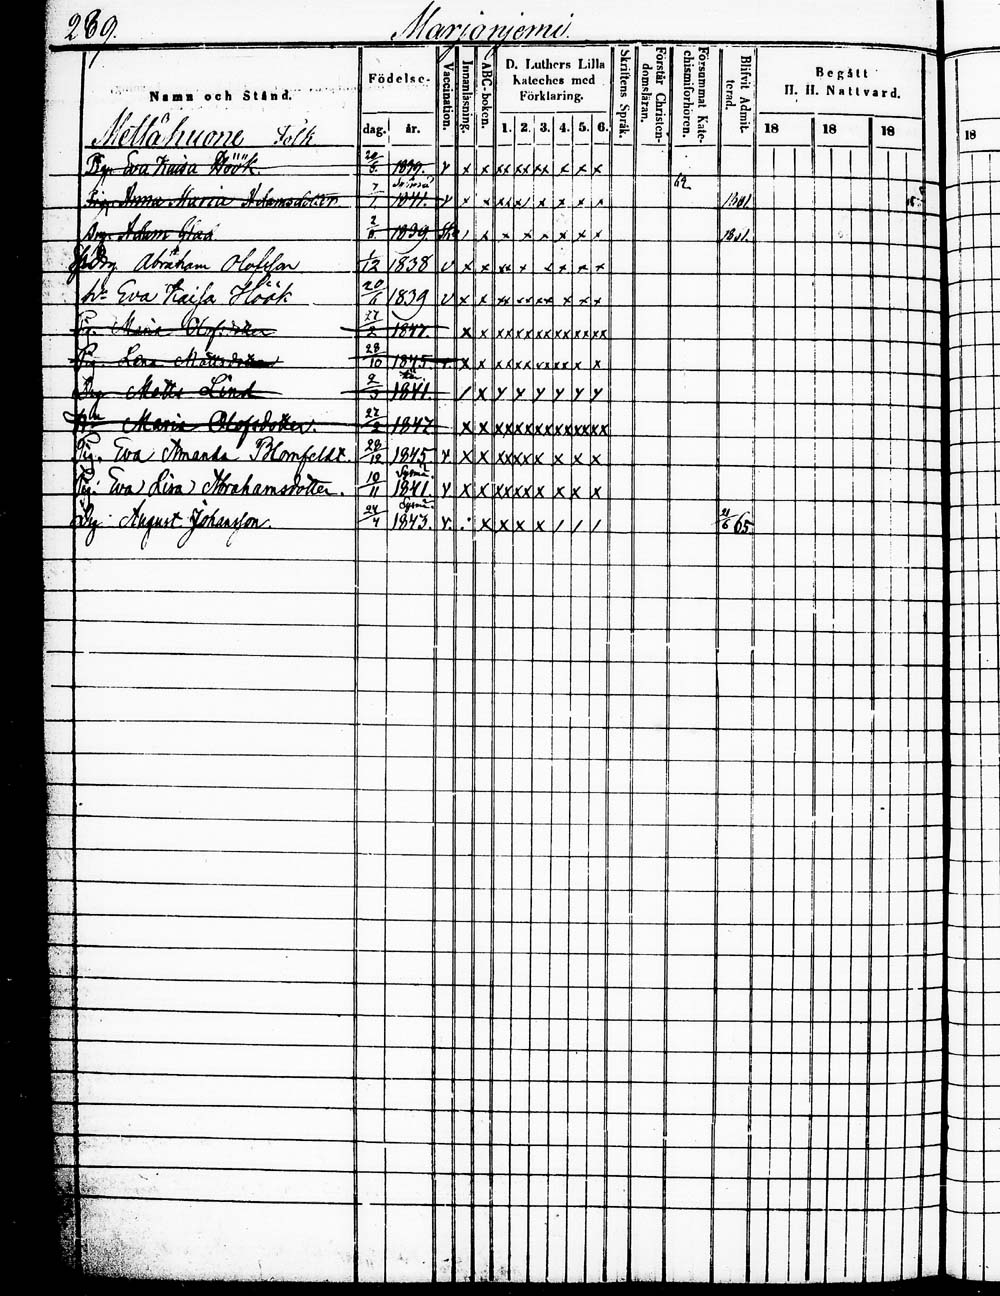 239. Marjaniemi.
Namn och Stånd. Födelse- dag. år. Vaccination. Innanläsning. ABC-boken. D. Luthers Lilla Kateches med Förklaring. 1. 2. 3. 4. 5. 6. Skriftens Språk. Förstår Christendomsläran. Försummat Katechismiförhören. Blifvit Admitterad. Begått H. H. Nattvard. 18 18 18 18
Folk
Pig. Eva Kaisa Höök. 20/6 1839. v x x xx xx x x x x
62
Pig. Anna Maria Adamsdotter 7/1 1841. v x x 1861
Drg. Adam Glad 2/6 1839. 1861.
Drg Abraham Olofsson 1/12 1838 v x x
h:u Eva Kaisa Höök 20/6 1839 v x x
Pig. Maria Olofsdotter 27/2 1847. x x
Pig. Lena Mattsdotter 28/10 1845 x x
Drg Matts Lind 2/3 1841. / x y y y y y y
H:u Maria Olofsdotter. 27/2 1847 x x
Pig. Eva Amanda Blomfeldt. 28/12 1845 v x x
Pig. Eva Lisa Abrahamsdotter. 10/11 Sysmä 1841. v x x
Drg. August Johansson. 24/4 Sysmä. 1843. v. x x x x / / / 21/6 65.